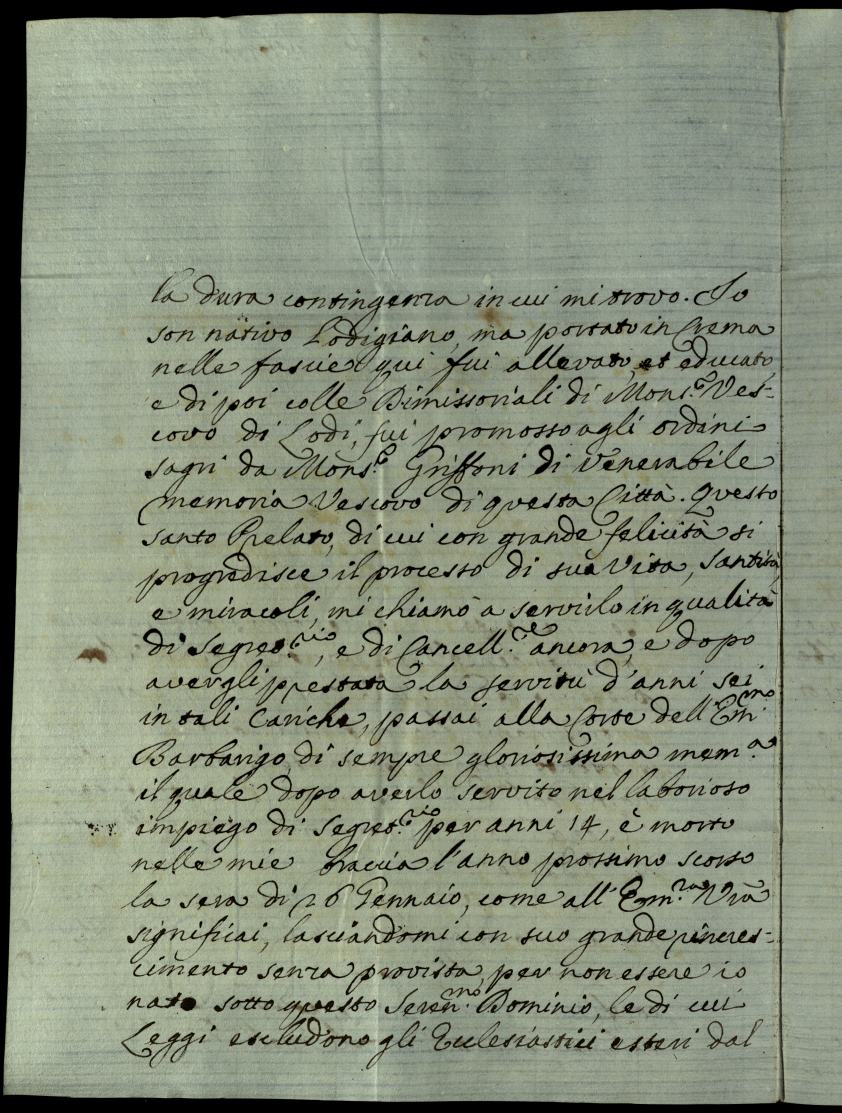 la dura contingenza in cui mi trovo. Io
son nativo Lodigiano, ma portato in Crema
nelle fascie qui fui allevato, et educato,
e di poi colle Dimissoriali di Mons.r Ves=
covo di Lodi, fui promosso agli ordini
sagri da Mons.r Griffoni di venerabile
memoria Vescovo di questa Città. Questo
santo Prelato, di cui con grande felicità si
progredisce il processo di sua Vita, Santità,
e miracoli, mi chiamò a servirlo in qualità
di Segret.rio, e di Cancell.re ancora, e dopo
avergli prestata la servitù d'anni sei
in tali Cariche, passai alla Corte dell'Em.mo
Barbarigo di sempre gloriosissima mem.a
il quale dopo averlo servito nel laborioso
impiego di Segret.rio per anni 14, è morto
nelle mie braccia l'anno prossimo scorso
la sera di 26 Gennaio, come all'Em.za Vra
significai, lasciandomi con suo grande rincres=
cimento senza provista, per non essere io
nato sotto questo Seren.mo Dominio, le di cui
Leggi escludono gli Ecclesiastici esteri dal